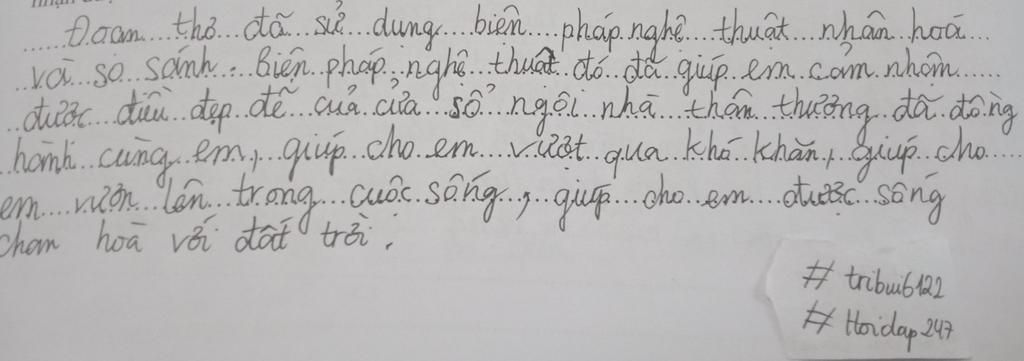 Đoạn thơ đã sử dụng biện pháp nghệ thuật nhân hoá
và so sánh. Biện pháp nghệ thuật đó đã giúp em cảm nhận
được điều đẹp đẽ của cửa sổ ngôi nhà thân thương đã đồng
hành cùng em, giúp cho em vượt qua khó khăn, giúp cho
em vươn lên trong cuộc sống, giúp cho em được sống
chan hoà với đất trời.
# tribui6122
# Hoidap247